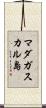 マダガス
カル島